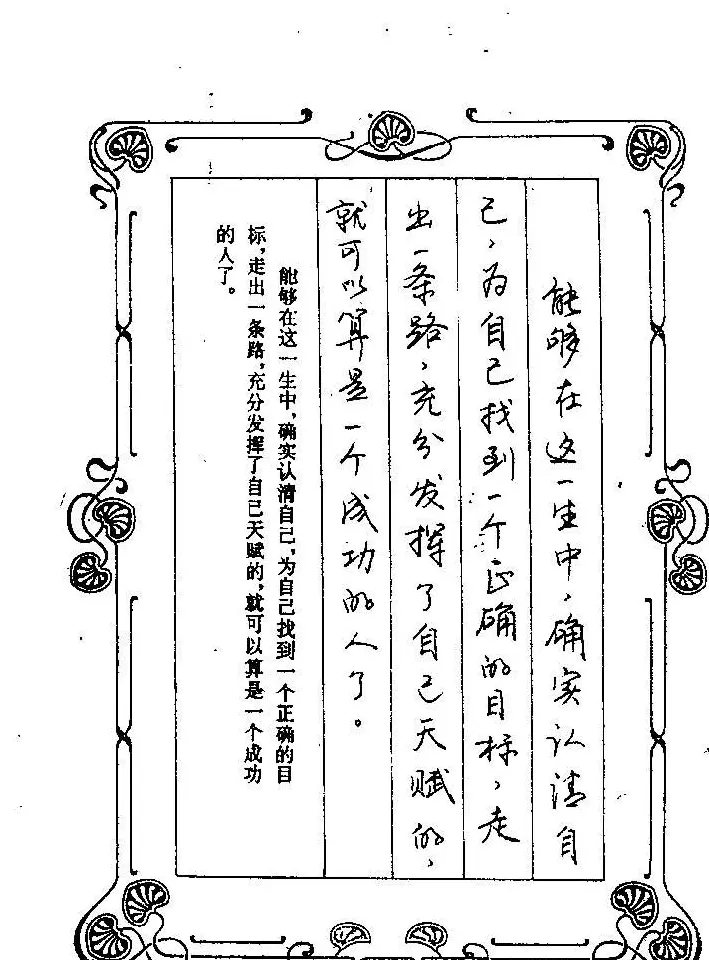 能够在这一生中，确实认清自
己，为自己找到一个正确的目标，走
出一条路，充分发挥了自己天赋的，
就可以算是一个成功的人了。
能够在这一生中，确实认清自己，为自己找到一个正确的目
标，走出一条路，充分发挥了自己天赋的，就可以算是一个成功
的人了。